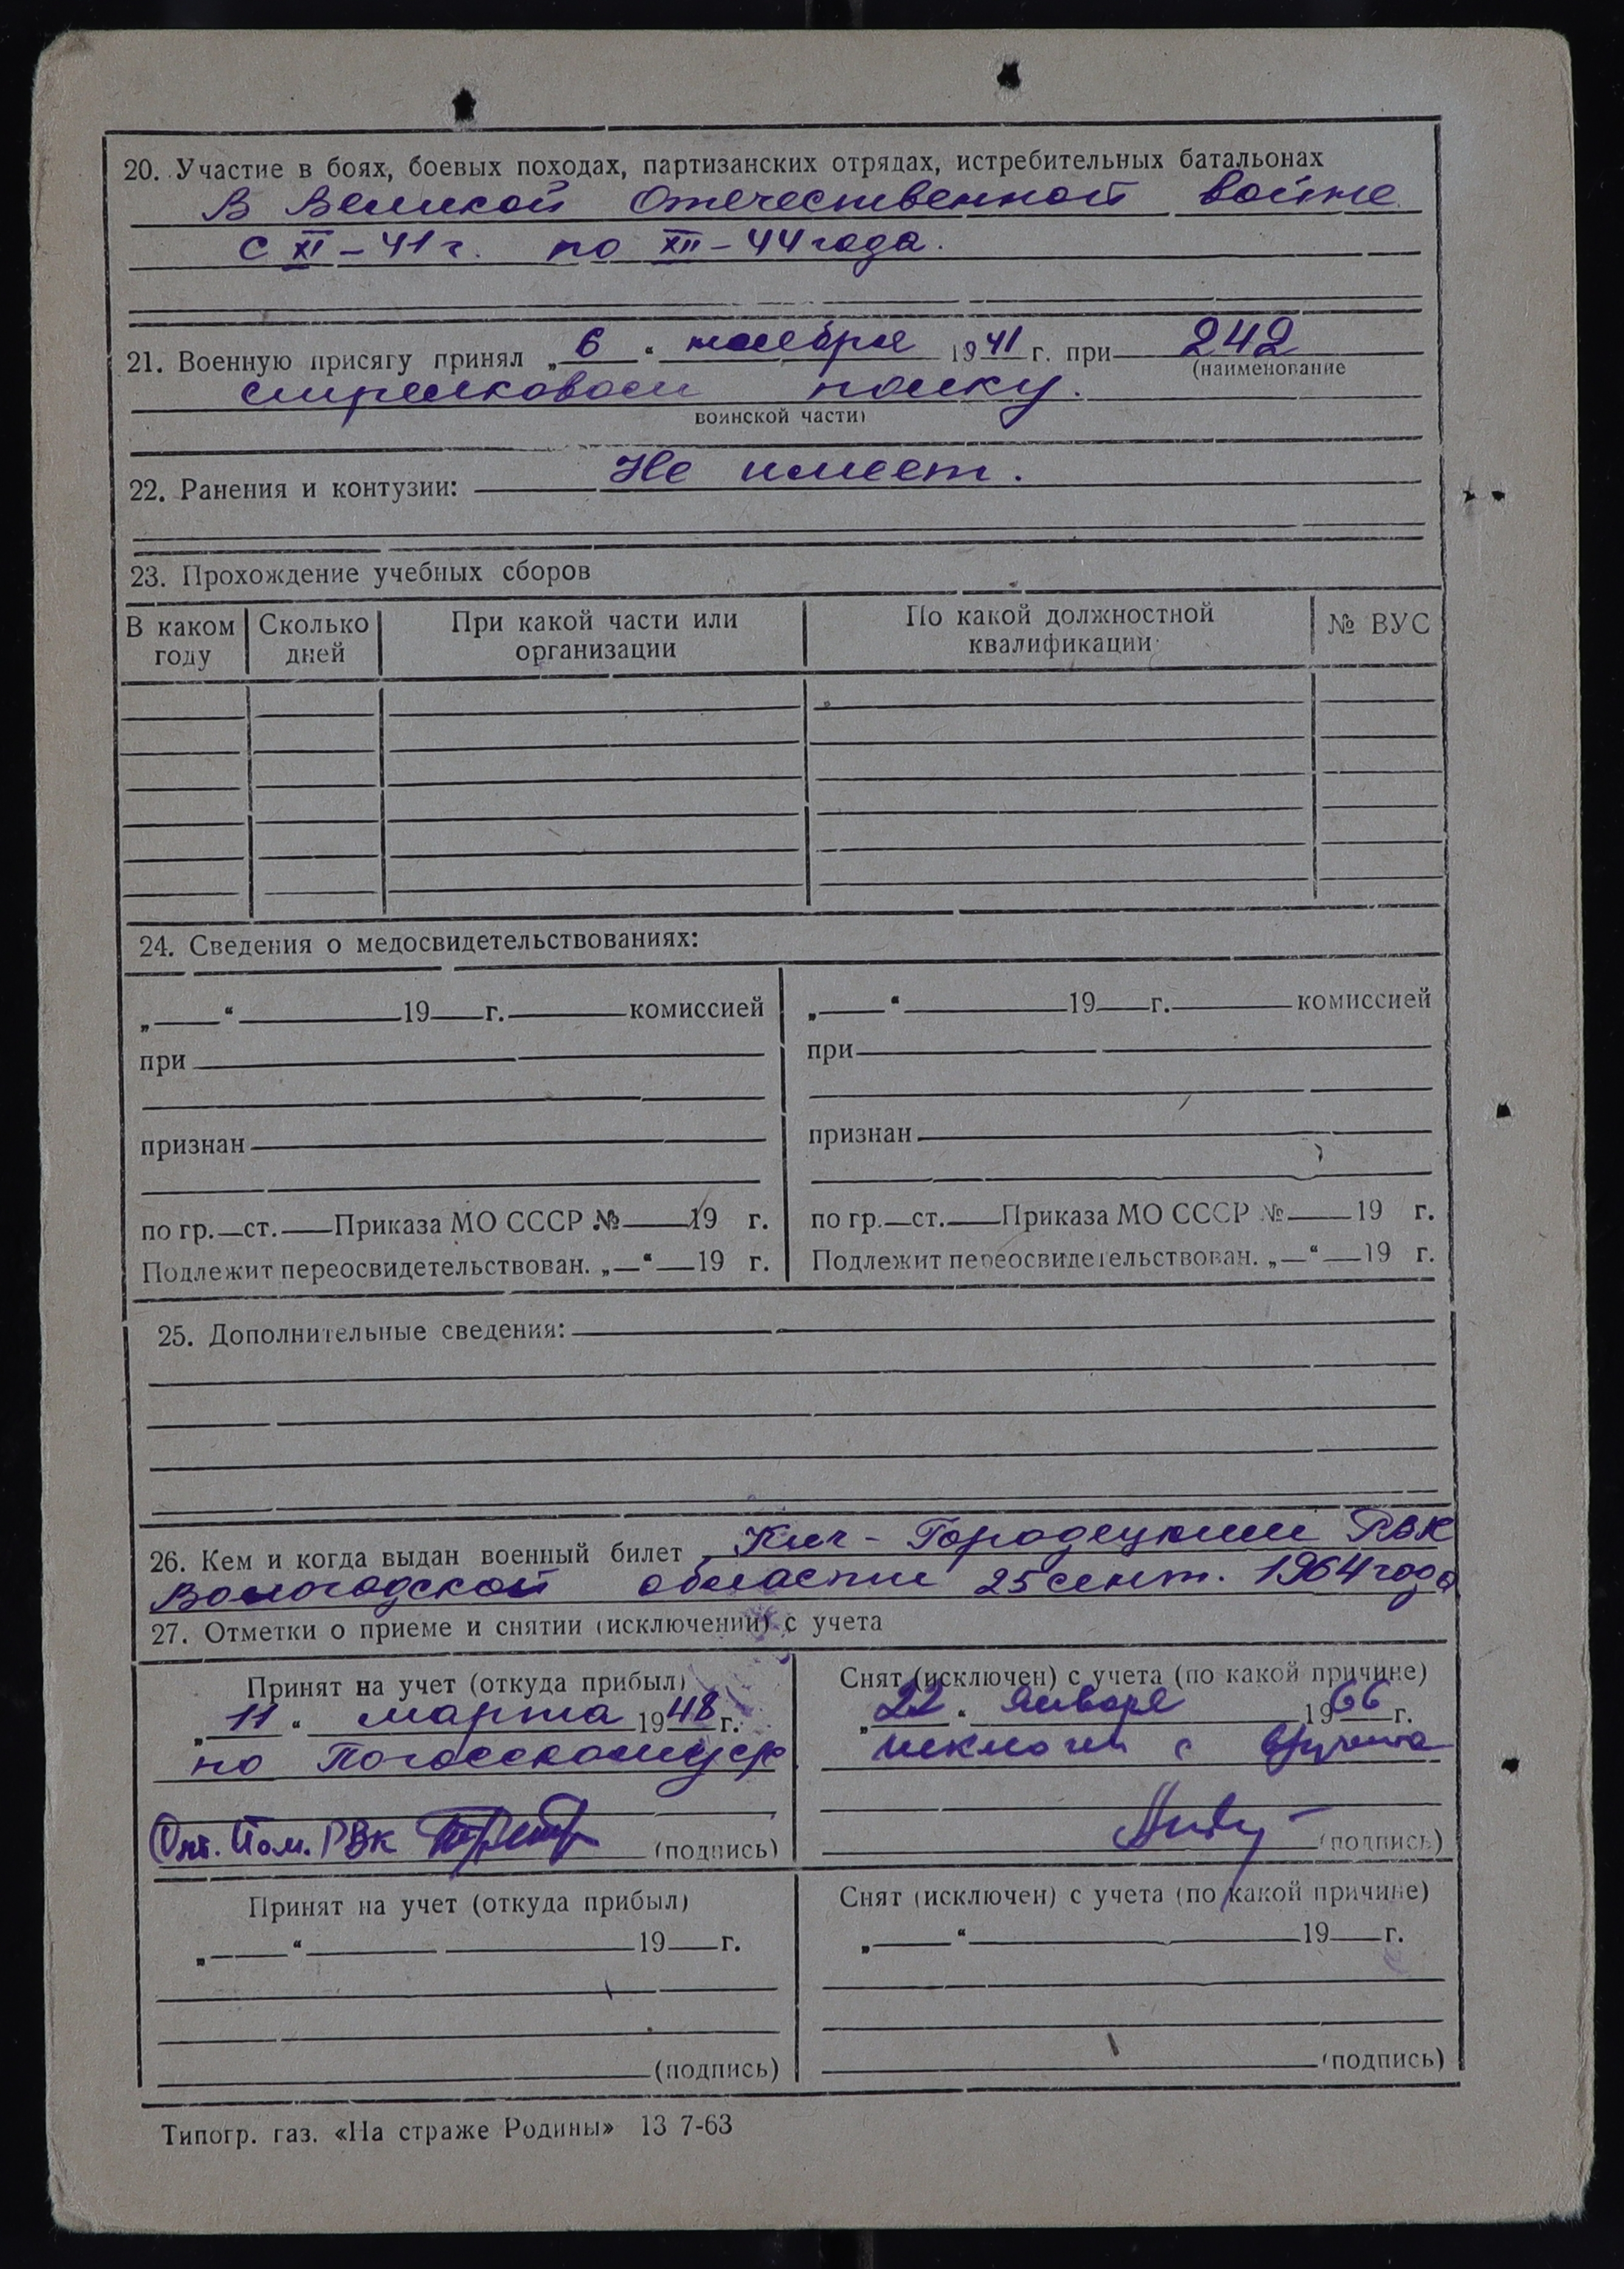 20. Участие в боях, боевых походах, партизанских отрядах, истребительных батальонах
В Великой Отечественной войне
с XI – 41 г. по XII – 44 года.
21. Военную присягу принял „ 6 “ ноября 19 41 г. при 242
(наименование
стрелковом полку.
воинской части)
22. Ранения и контузии: Не имеет.
23. Прохождение учебных сборов
В каком году Сколько дней При какой части или организации По какой должностной квалификации № ВУС
24. Сведения о медосвидетельствованиях:
„ “ 19 г. комиссией „ “ 19 г. комиссией
при при
признан признан
по гр. ст. Приказа МО СССР № 19 г. по гр. ст. Приказа МО СССР № 19 г.
Подлежит переосвидетельствован. „ “ 19 г. Подлежит переосвидетельствован. „ “ 19 г.
25. Дополнительные сведения:
26. Кем и когда выдан военный билет Кич-Городецким РВК
Вологодской области 25 сент. 1964 года
27. Отметки о приеме и снятии (исключении) с учета
Принят на учет (откуда прибыл) Снят (исключен) с учета (по какой причине)
„ 11 “ марта 19 48 г. „ 22 “ января 19 66 г.
по исключен с
Пом. РВК (подпись) (подпись)
Принят на учет (откуда прибыл) Снят (исключен) с учета (по какой причине)
„ “ 19 г. „ “ 19 г.
(подпись) (подпись)
Типогр. газ. «На страже Родины» 13 7-63